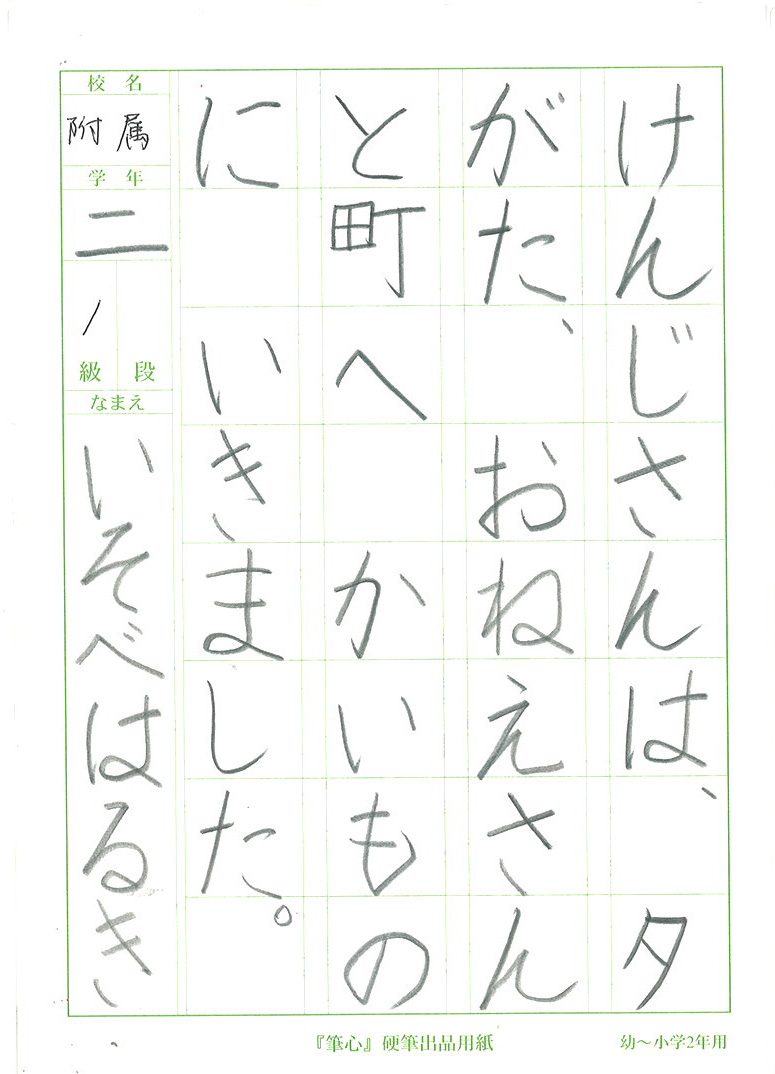 けんじさんは、 夕
がた、 おねえさん
と町へ かいもの
に いきました。
校名
附属
学年
二
級 段
なまえ
いそべはるき
『筆心』硬筆出品用紙
幼〜小学2年用